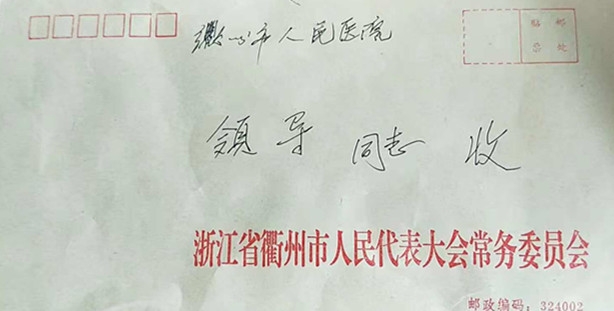 贴邮
票处
衢州市人民医院
领导 同志 收
浙江省衢州市人民代表大会常务委员会
邮政编码：324002